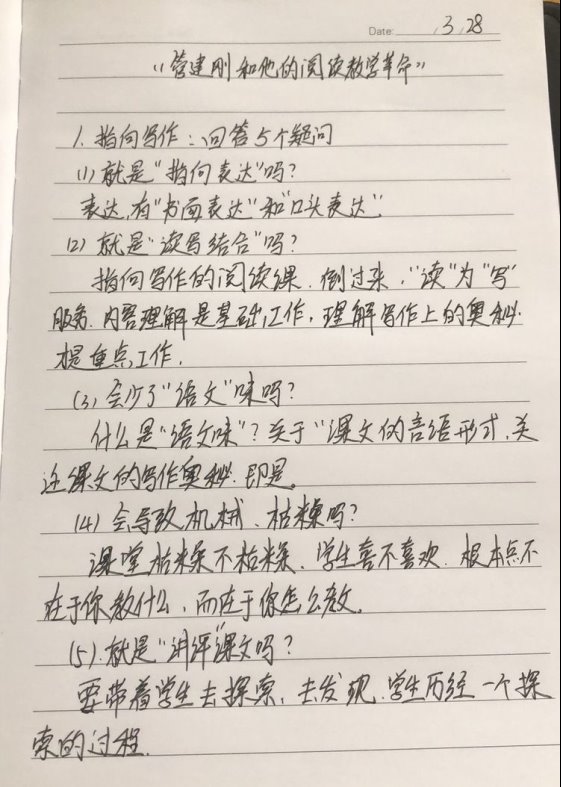 Date: 3.28
“管建刚和他的阅读教学革命”
1. 指向写作：回答5个疑问
(1) 就是“指向表达”吗？
表达,有“书面表达”和“口头表达”
(2) 就是“读写结合”吗？
指向写作的阅读课.倒过来,“读”为“写”
服务.内容理解是基础工作,理解写作上的奥秘.
是重点工作.
(3) 会少了“语文”味吗？
什么是“语文味”？关于“课文的言语形式.关
注课文的写作奥秘.即是。
(4) 会导致机械、枯燥吗？
课堂枯燥不枯燥、学生喜不喜欢.根本点不
在于你教什么,而在于你怎么教.
(5).就是“讲评”课文吗？
要带着学生去探索、去发现.学生历经一个探
索的过程.